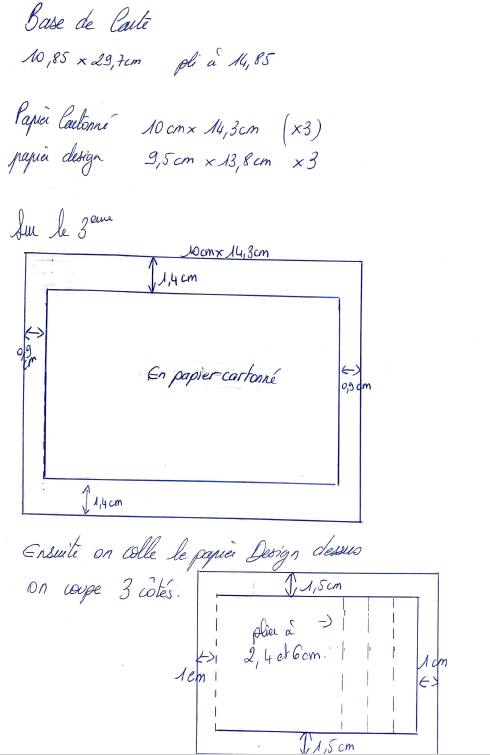 Base de Carte
10,85 x 29,7cm pli à 14,85
Papier Cartonné 10cm x 14,3cm (x3)
papier design 9,5cm x 13,8cm x3
Sur le 3eme
10cm x 14,3cm
1,4cm
0,9 cm
En papier cartonné
0,9cm
1,4cm
Ensuite on colle le papier Design dessus
on coupe 3 côtés.
1,5cm
plier à ->
2,4 et 6cm.
1cm
1cm
1,5cm